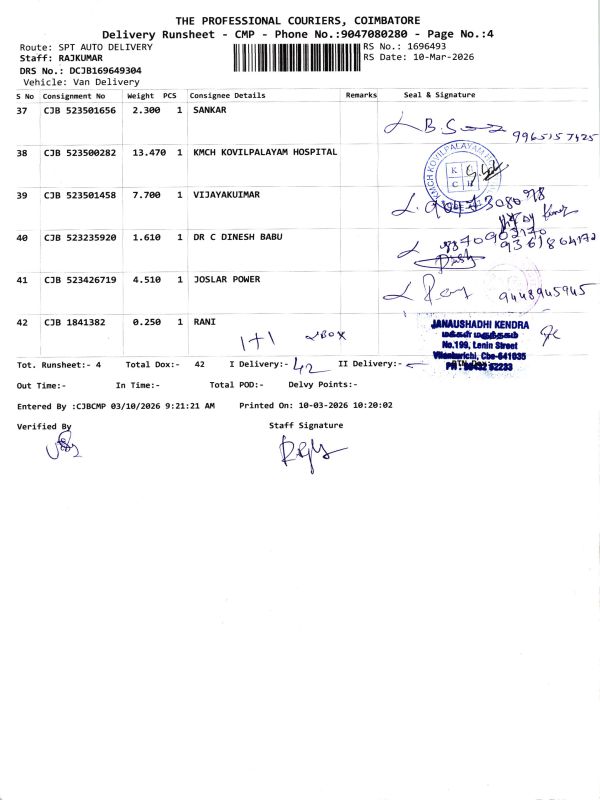 THE PROFESSIONAL COURIERS, COIMBATORE
Delivery Runsheet - CMP - Phone No.:9047080280 - Page No.:4
Route: SPT AUTO DELIVERY
RS No.: 1696493
Staff: RAJKUMAR
RS Date: 10-Mar-2026
DRS No.: DCJB169649304
Vehicle: Van Delivery
S No Consignment No Weight PCS Consignee Details Remarks Seal & Signature
37 CJB 523501656 2.300 1 SANKAR
9965157425
38 CJB 523500282 13.470 1 KMCH KOVILPALAYAM HOSPITAL
KMCH KOVILPALAYAM
39 CJB 523501458 7.700 1 VIJAYAKUIMAR
40 CJB 523235920 1.610 1 DR C DINESH BABU
41 CJB 523426719 4.510 1 JOSLAR POWER
9448945945
42 CJB 1841382 0.250 1 RANI
1+1 BOX
JANAUSHADHI KENDRA
மக்கள் மருந்தகம்
No.199, Lenin Street
Vilankurichi, Cbe-641035
Tot. Runsheet:- 4 Total Dox:- 42 I Delivery:- 42 II Delivery:-
Out Time:- In Time:- Total POD:- Delvy Points:-
Entered By :CJBCMP 03/10/2026 9:21:21 AM Printed On: 10-03-2026 10:20:02
Verified By Staff Signature